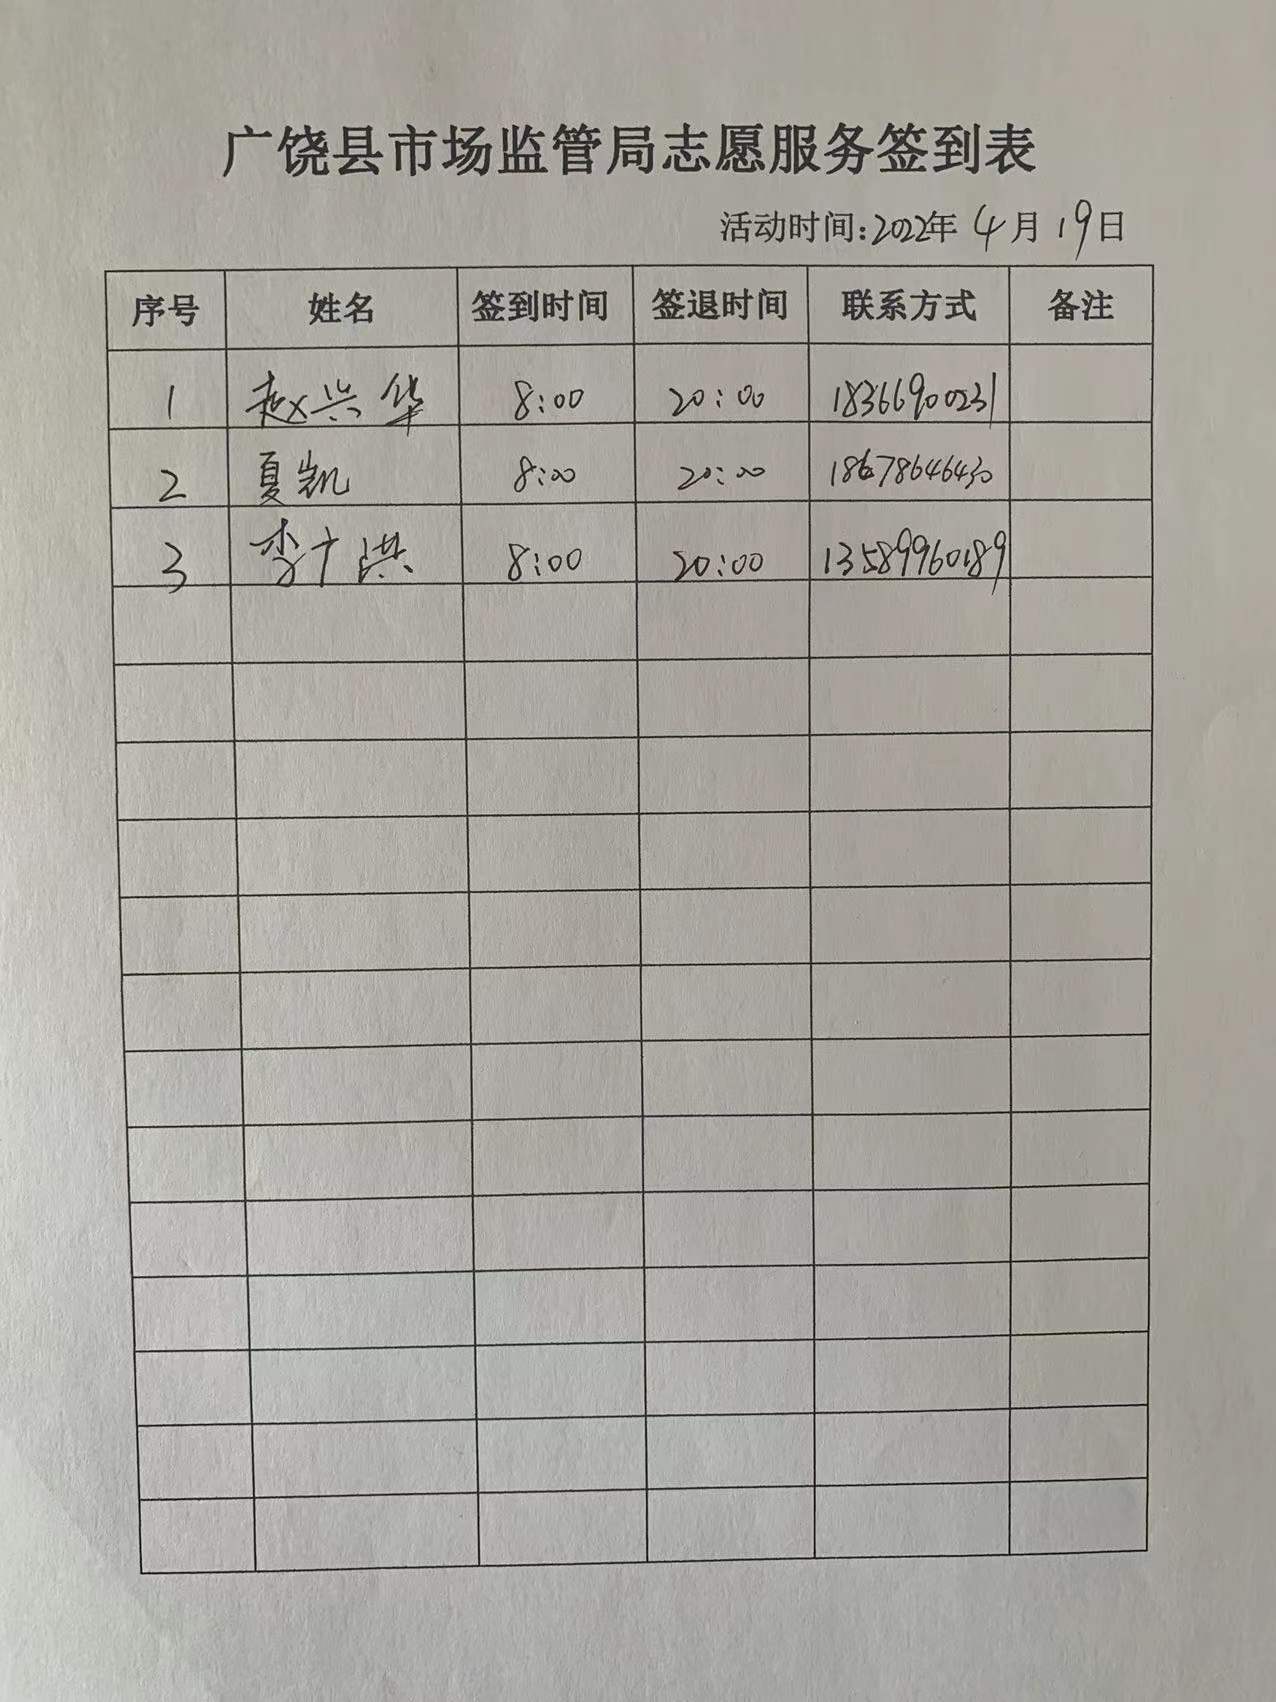 广饶县市场监管局志愿服务签到表
活动时间:2022年 4月 19日
序号 姓名 签到时间 签退时间 联系方式 备注
1 赵兴华 8:00 20:00 18366900231
2 夏凯 8:00 20:00 18678646430
3 李广洪 8:00 20:00 13589960189